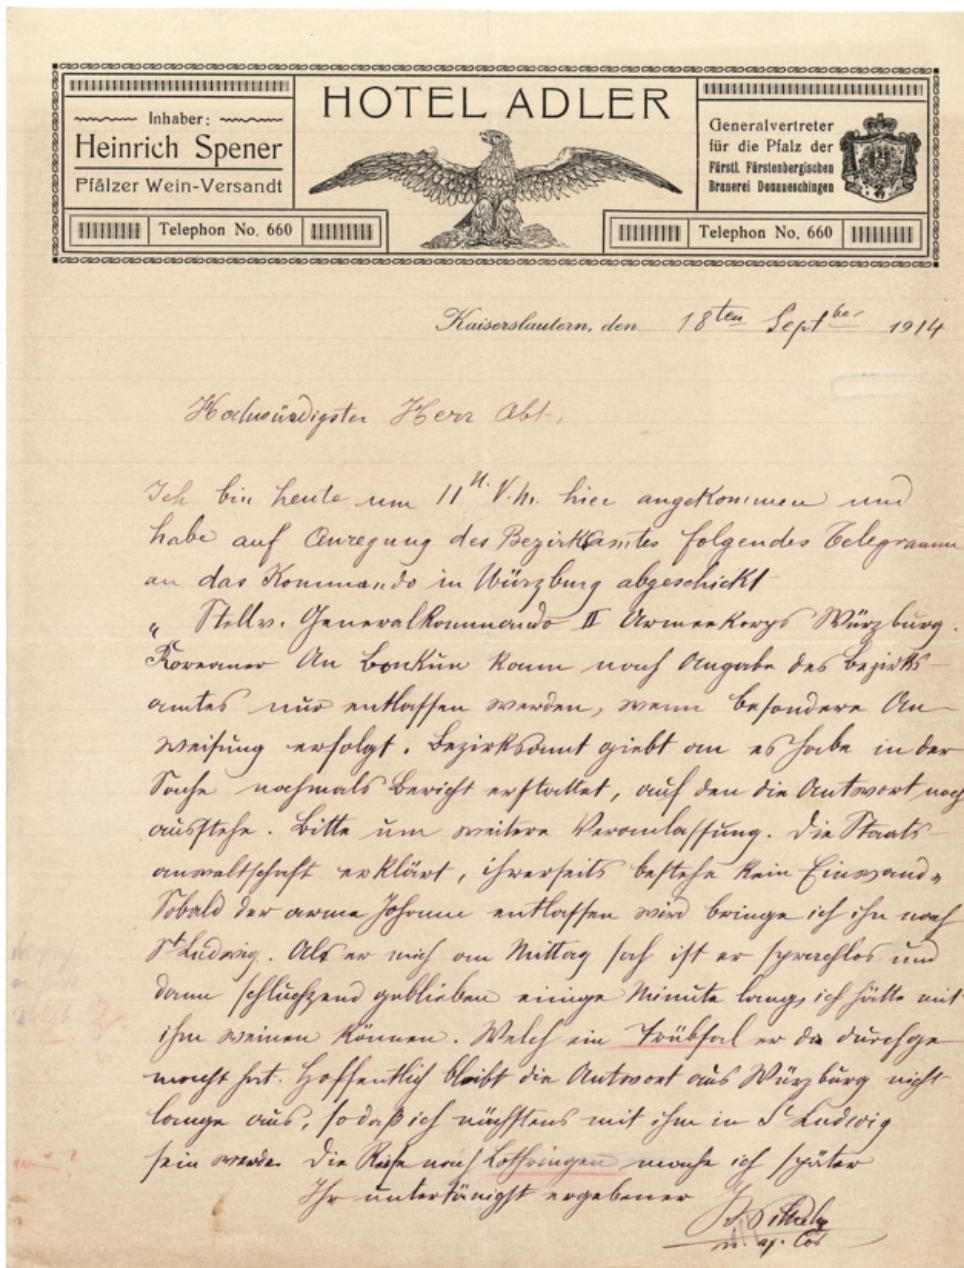 HOTEL ADLER
Inhaber:
Heinrich Spener
Pfälzer Wein-Versandt
Telephon No. 660
Generalvertreter
für die Pfalz der
Fürstl. Fürstenbergischen
Brauerei Donaueschingen
Telephon No. 660
Kaiserslautern, den 18ten Septber 1914
Hochwürdigster Herr Abt,
Ich bin heute um 11 U. V. M. hier angekommen und
habe auf Anregung des Bezirksamtes folgendes Telegramm
an das Kommando in Würzburg abgeschickt
„ Stellv. Generalkommando II Armeekorps Würzburg.
Koreaner An Bonkun kann nach Angabe des Bezirks-
amtes nur entlassen werden, wenn besondere An-
weisung erfolgt. Bezirksamt giebt an es habe in der
Sache nochmals Bericht erstattet, auf den die Antwort noch
ausstehe. Bitte um weitere Veranlassung. Die Staats-
anwaltschaft erklärt, ihrerseits bestehe kein Einwand„
Sobald der arme Johann entlassen wird bringe ich ihn nach
St Ludwig. Als er mich am Mittag sah ist er sprachlos und
dann schluchzend geblieben einige Minute lang, ich hätte mit
ihm weinen können. Welch ein Trübsal er da durchge
macht hat. Hoffentlich bleibt die Antwort aus Würzburg nicht
lange aus, so daß ich nächstens mit ihm in St Ludwig
sein werde. Die Reise nach Lothringen mache ich später
Ihr untertänigst ergebener